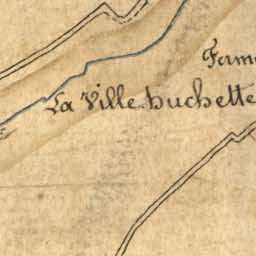 Ferm
La Ville-huchette